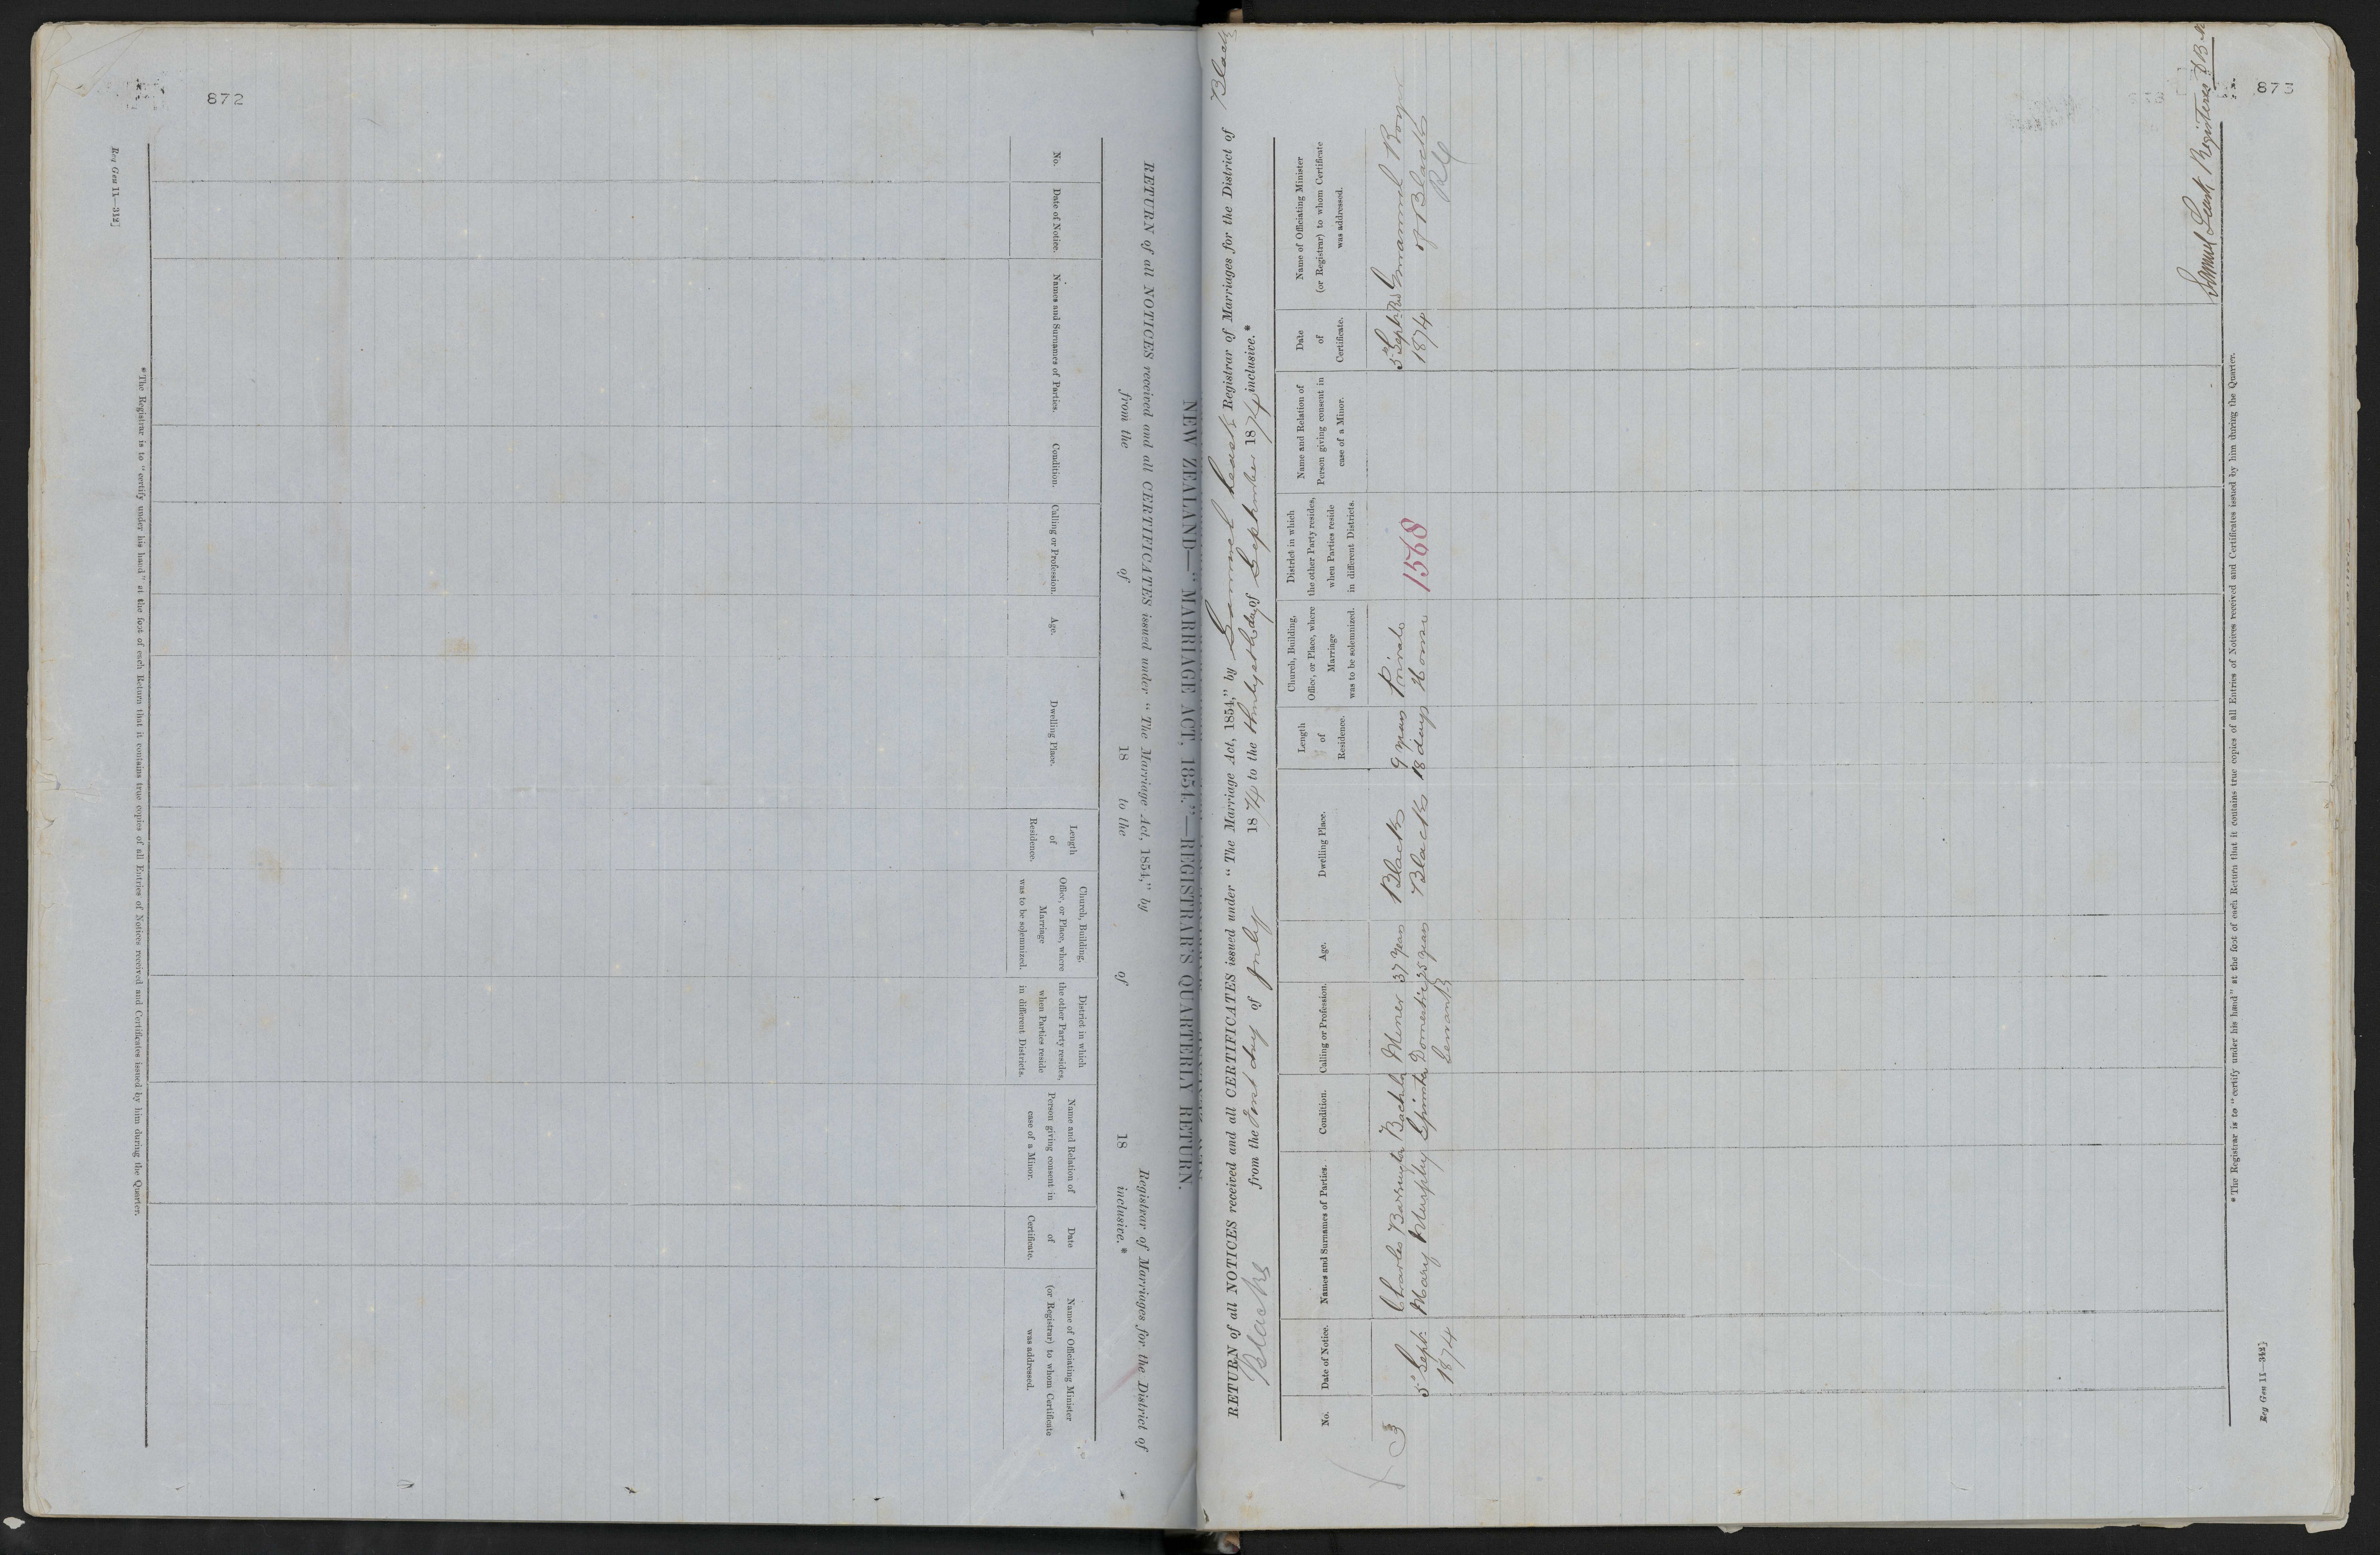 872
NEW ZEALAND—"MARRIAGE ACT, 1854."—REGISTRAR'S QUARTERLY RETURN.
RETURN of all NOTICES received and all CERTIFICATES issued under "The Marriage Act, 1854," by Registrar of Marriages for the District of
from the of 18 to the of 18 inclusive.*
No.
Date of Notice.
Names and Surnames of Parties.
Condition.
Calling or Profession.
Age.
Dwelling Place.
Length of Residence.
Church, Building, Office, or Place, where Marriage was to be solemnized.
District in which the other Party resides, when Parties reside in different Districts.
Name and Relation of Person giving consent in case of a Minor.
Date of Certificate.
Name of Officiating Minister (or Registrar) to whom Certificate was addressed.
*The Registrar is to "certify under his hand" at the foot of each Return that it contains true copies of all Entries of Notices received and Certificates issued by him during the Quarter.
Reg Gen 11—312]
873
RETURN of all NOTICES received and all CERTIFICATES issued under "The Marriage Act, 1854," by Samuel Registrar of Marriages for the District of Blacks
Blacks from the First day of July 1874 to the day of September 1874 inclusive.*
No.
Date of Notice.
Names and Surnames of Parties.
Condition.
Calling or Profession.
Age.
Dwelling Place.
Length of Residence.
Church, Building, Office, or Place, where Marriage was to be solemnized.
District in which the other Party resides, when Parties reside in different Districts.
Name and Relation of Person giving consent in case of a Minor.
Date of Certificate.
Name of Officiating Minister (or Registrar) to whom Certificate was addressed.
3 Charles Miner 37 years Blacks 9 years Private 5 Sept Rev Emanuel
5 Sept Mary Murphy Domestic 25 years Blacks 18 days House 1568 1874 of Blacks
1874 Servant R C
Samuel Registrar
*The Registrar is to "certify under his hand" at the foot of each Return that it contains true copies of all Entries of Notices received and Certificates issued by him during the Quarter.
Reg Gen 11—342]